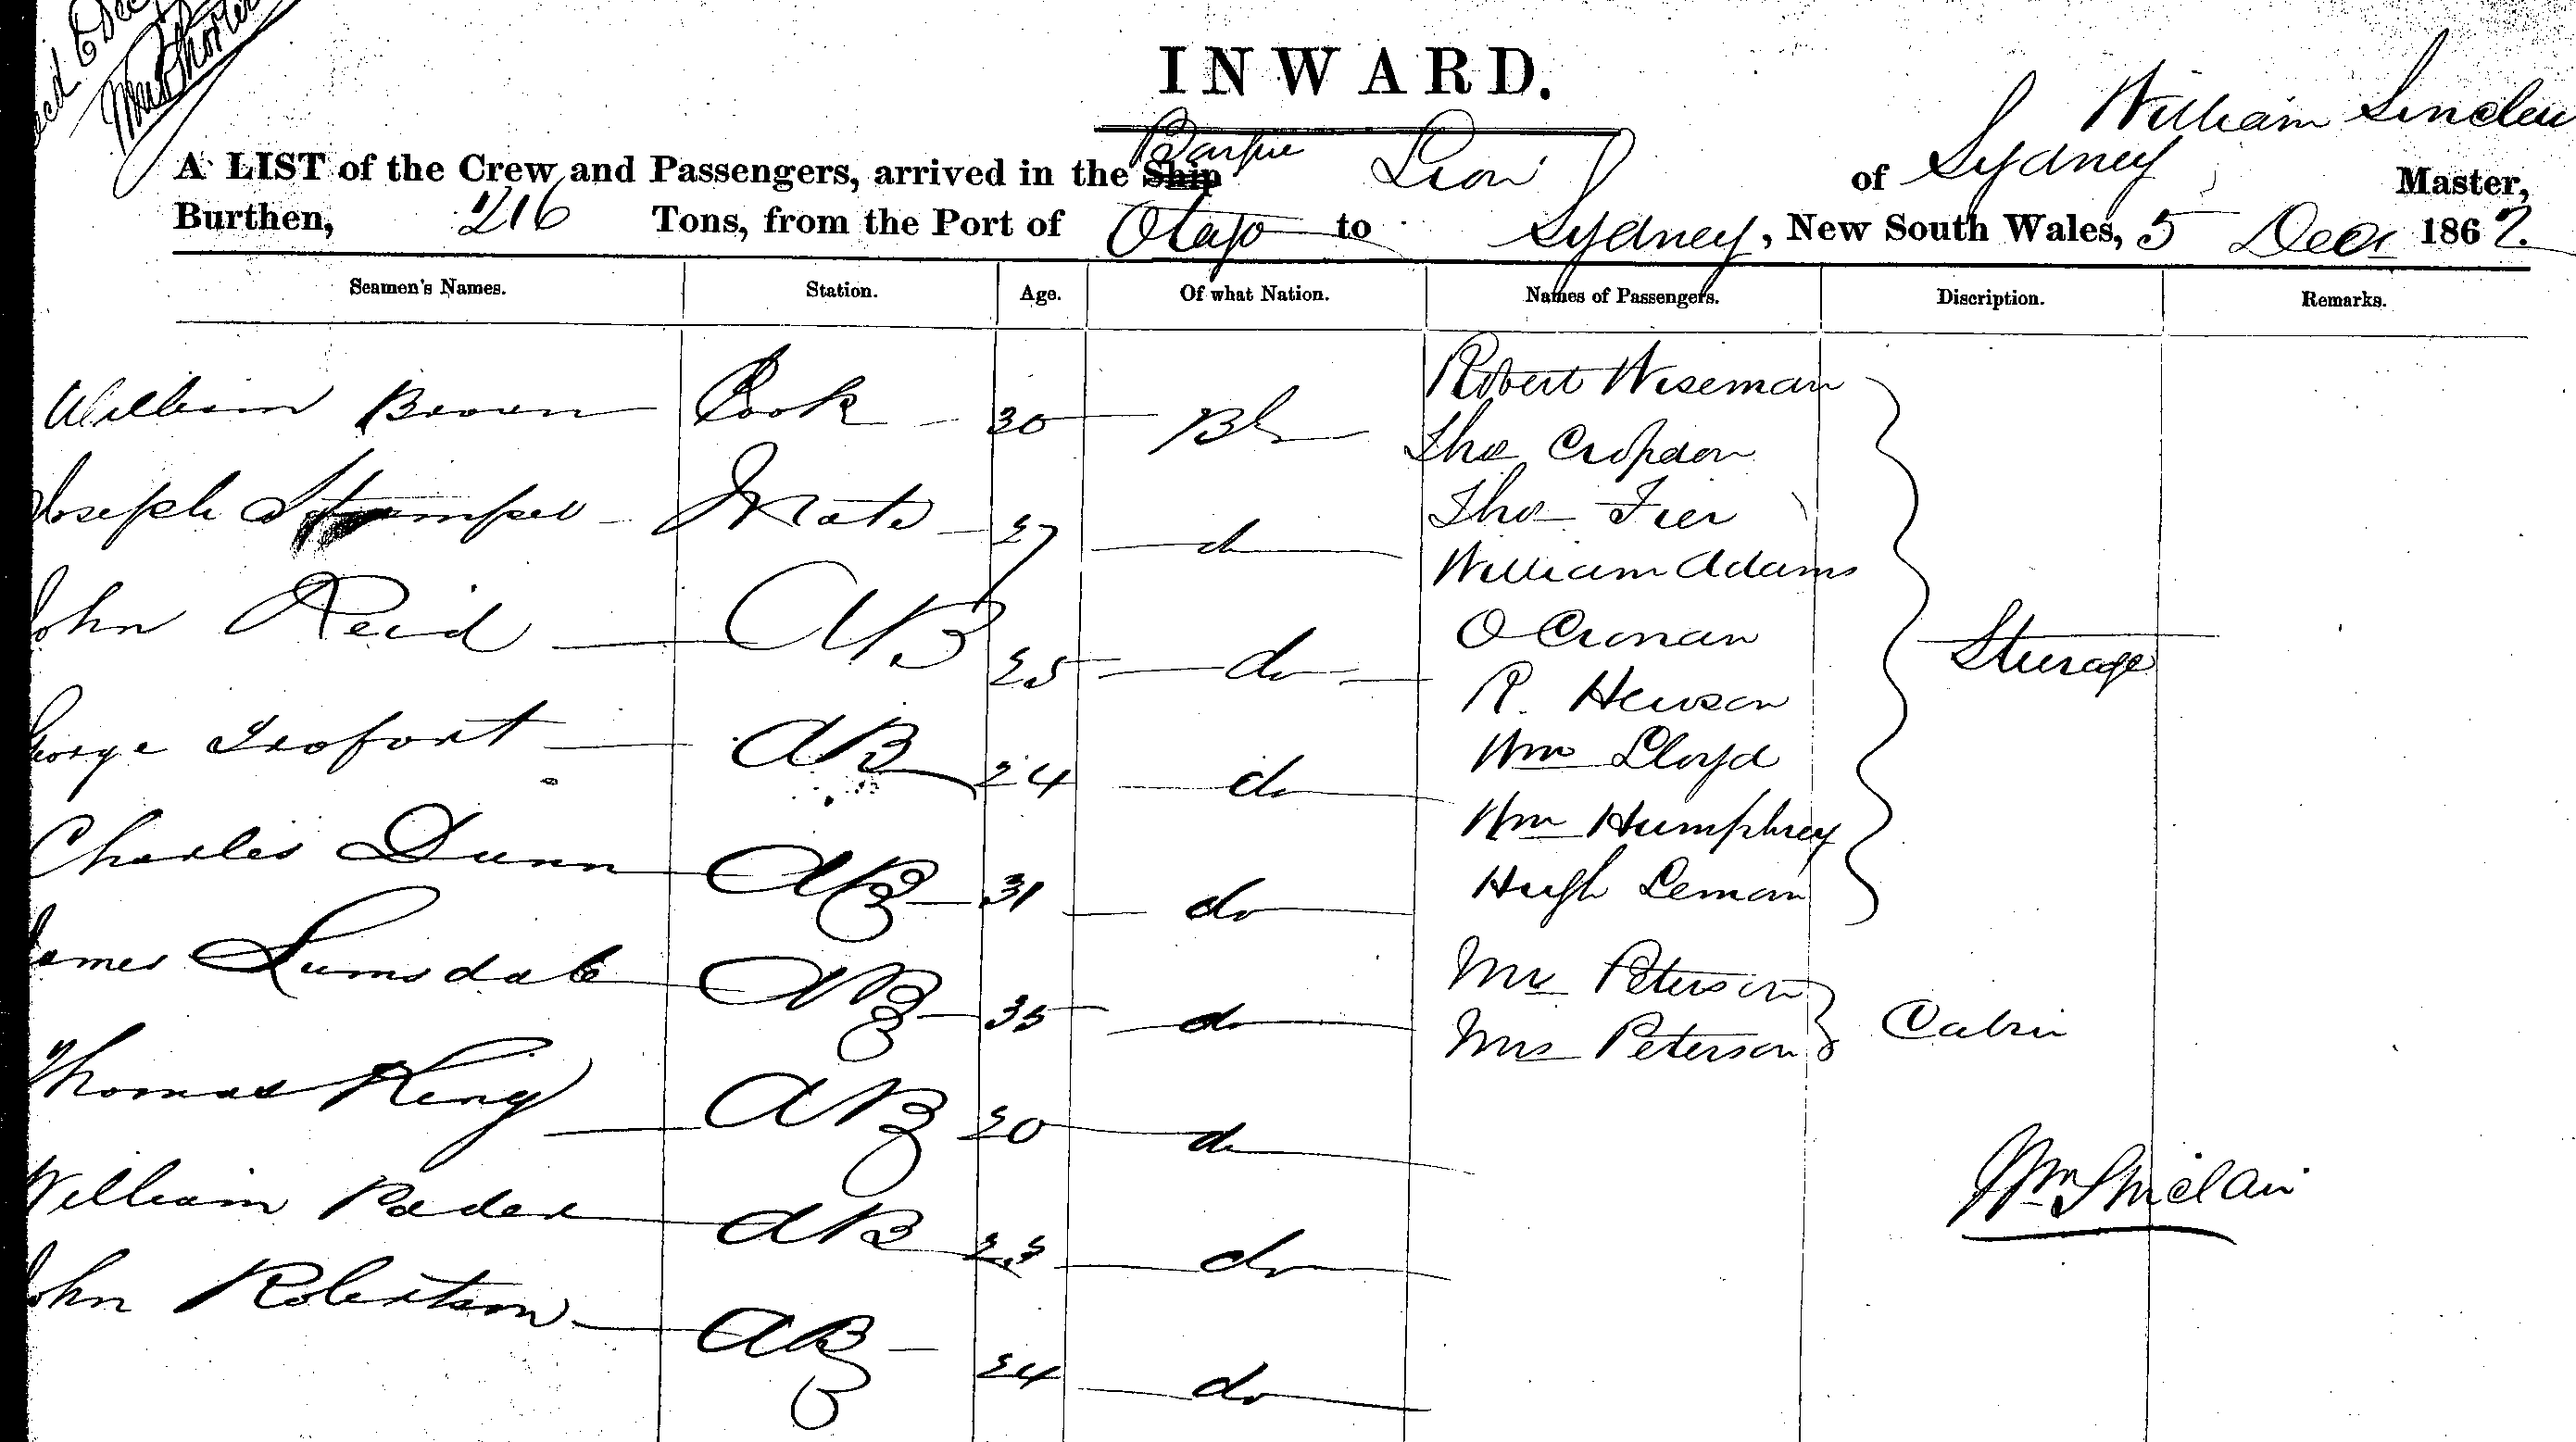 INWARD.
William Sinclair
A LIST of the Crew and Passengers, arrived in the Ship Barque Lion of Sydney Master,
Burthen, 216 Tons, from the Port of Otago to Sydney, New South Wales, 5 Decr 1862.
Seamen's Names. Station. Age. Of what Nation. Names of Passengers. Discription. Remarks.
William Brown Cook 30 Br Robert Wiseman
Thos
Joseph Mate 27 do Thos Fier
William Adams
John Reid AB 25 do O Cronan Steerage
R. Hewson
George AB 24 do Wm Lloyd
Wm Humphrey
Charles Dunn AB 31 do Hugh Leman
James Lumsdale AB 35 do Mr Peterson
Mrs Peterson Cabin
Thomas King AB 20 do
William Pader AB 23 do Wm Sinclair
John Robertson AB 24 do